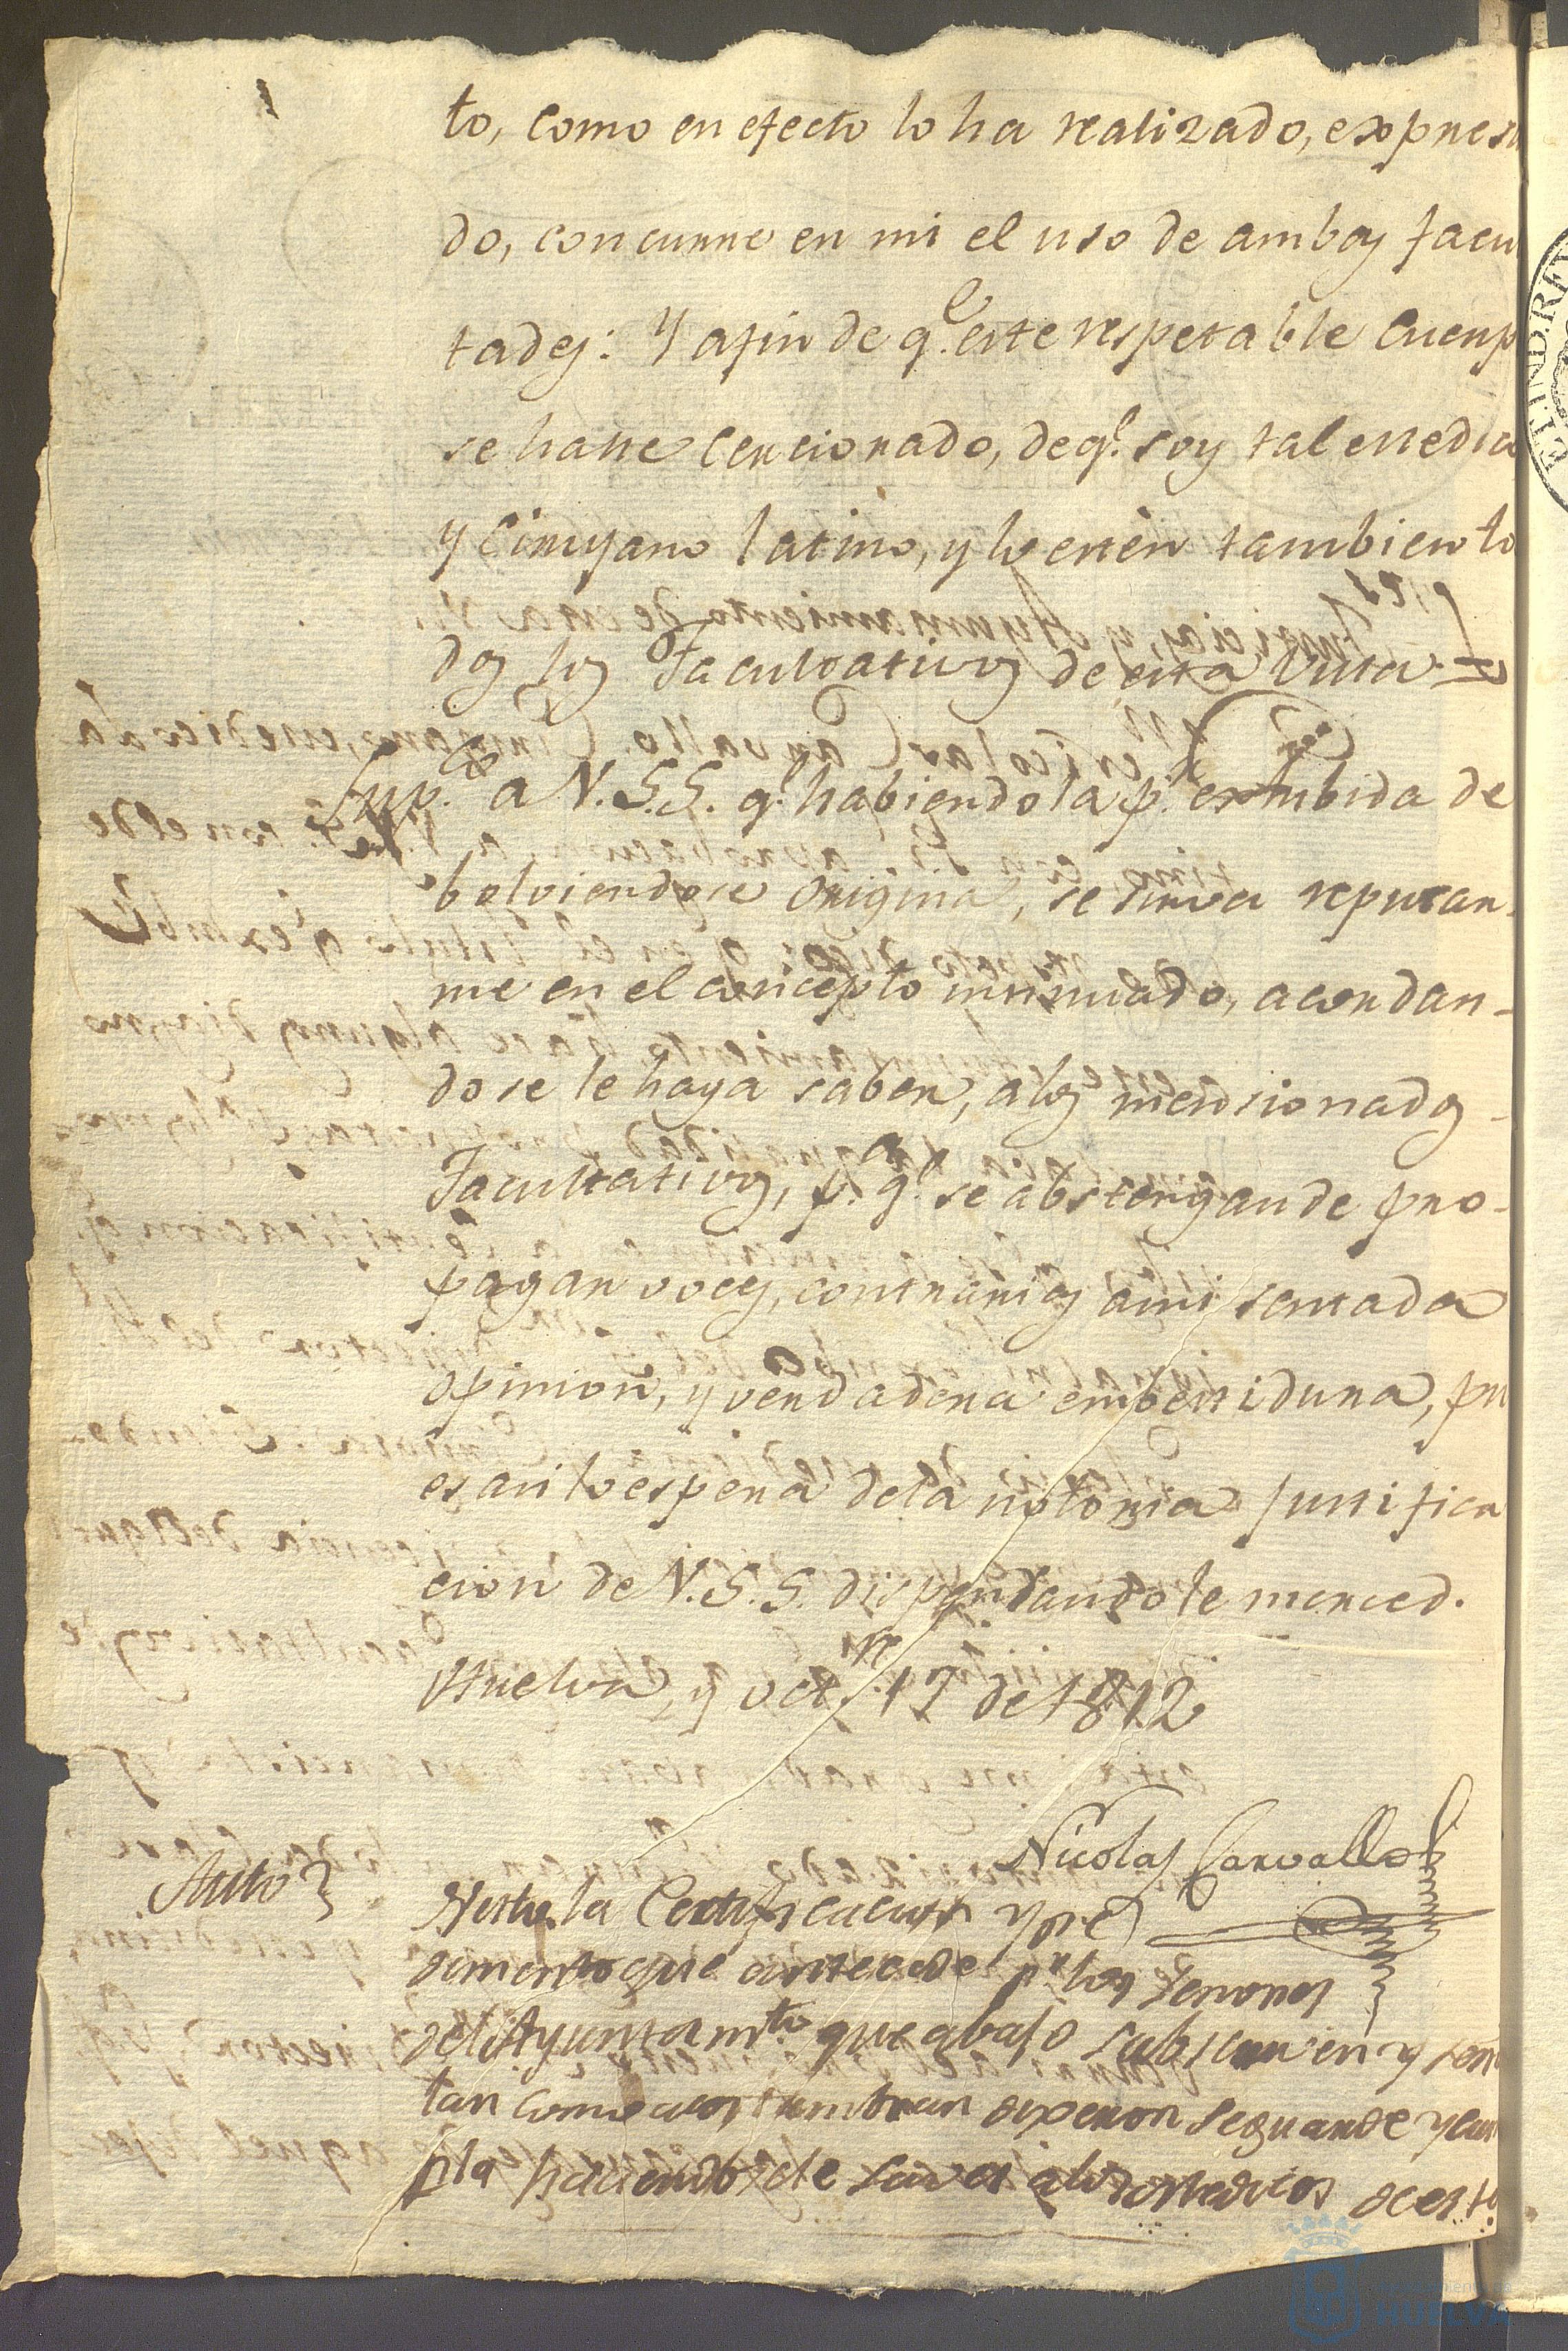 to, como en efecto lo ha realizado, expresa
do, concurre en mi el uso de ambas facu
tades: Y afin de qe. este respetable Cuerp
se halle cercionado, de qe. soy tal Medico
y Cirujano latino, y lo estèn tambien to
dos los Facultativos de esta Villa =
Supca. a V.S.S. qe. habiendola pr. exhibida de
bolviendose origina, se sirva reputar
me en el concepto insinuado, acordan-
dose le haga saber, alos mensionados
Facultativos, pa. qe. se abstengan de pro-
pagar voces, contrarias ami sentada
opinion, y verdadera embestidura, pu
es asi lo espera dela notoria justifica
cion de V.S.S. dispensandole merced.
Huelva, y octre. 17 de 1812
Nicolas Carvallo
Auto
Vista la Certificacion y pe
dimento que antecede pr. los Senores
del Ayuntamto. que abajo subscriven y señ
lan como acostumbran dixeron se guarde y cum
pla haciendosele saver alos Medicos de esta
HUELVA